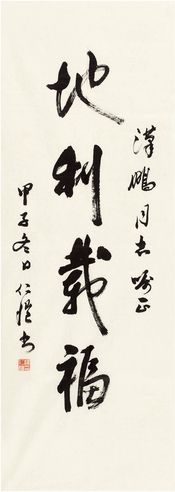 漢鵬同志嘱正
地利载福
甲子冬日仁恺书